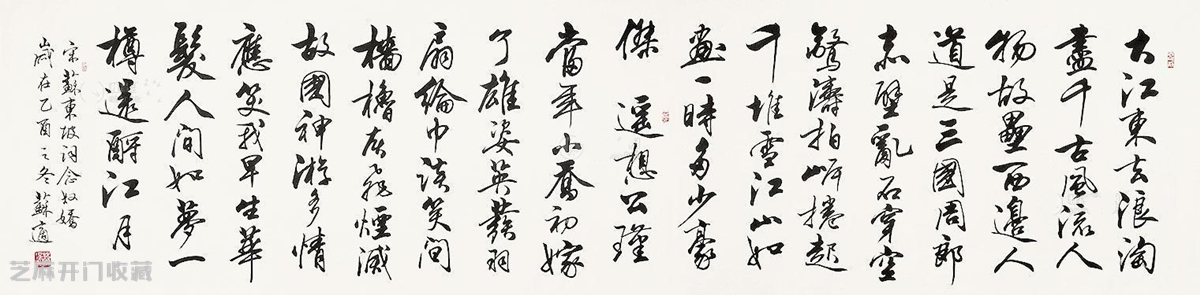 大江東去浪淘
盡千古風流人
物故壘西邊人
道是三國周郎
赤壁亂石穿空
驚濤拍岸捲起
千堆雪江山如
畫一時多少豪
傑 遥想公瑾
當年小喬初嫁
了雄姿英發羽
扇綸巾談笑間
檣櫓灰飛煙滅
故國神游多情
應笑我早生華
髮人間如夢一
樽還酹江月
宋蘇東坡詞念奴嬌
歲在乙酉之冬蘇適
芝麻开门收藏